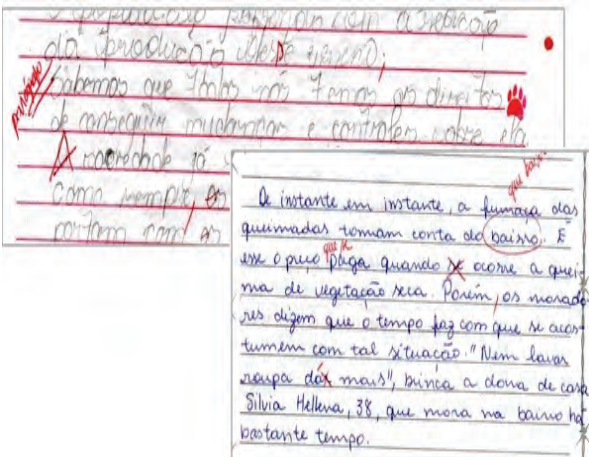 da produção
Sabemos que todos nós temos os direitos
de conseguir mudanças e controles sobre ela
parágrafo
A sociedade já
como sempre,
que bairro
De instante em instante, a fumaça das
queimadas tomam conta do bairro. É
esse o preço que se paga quando se ocorre a quei
ma de vegetação seca. Porém, os morado
res dizem que o tempo faz com que se acos
tumem com tal situação. "Nem lavar
roupa dá mais", brinca a dona de casa
Silvia Hellena, 38, que mora na bairro há
bastante tempo.